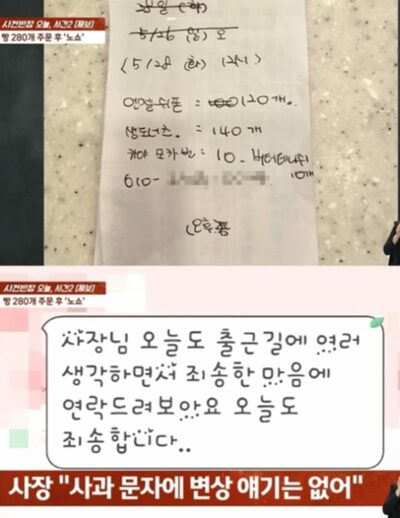 사건반장 오늘, 사건2 [제보]
빵 280개 주문 후 '노쇼'
5/26 (일) 오
(5/28 (화) 12시)
엔젤쉬폰 : 120개.
생도너츠. = 140개
카야 모카번 : 10.
10개
010-
사건반장 오늘, 사건2 [제보]
빵 280개 주문 후 '노쇼'
사장님 오늘도 출근길에 여러
생각하면서 죄송한 마음에
연락드려보아요 오늘도
죄송합니다..
사장 "사과 문자에 변상 얘기는 없어"